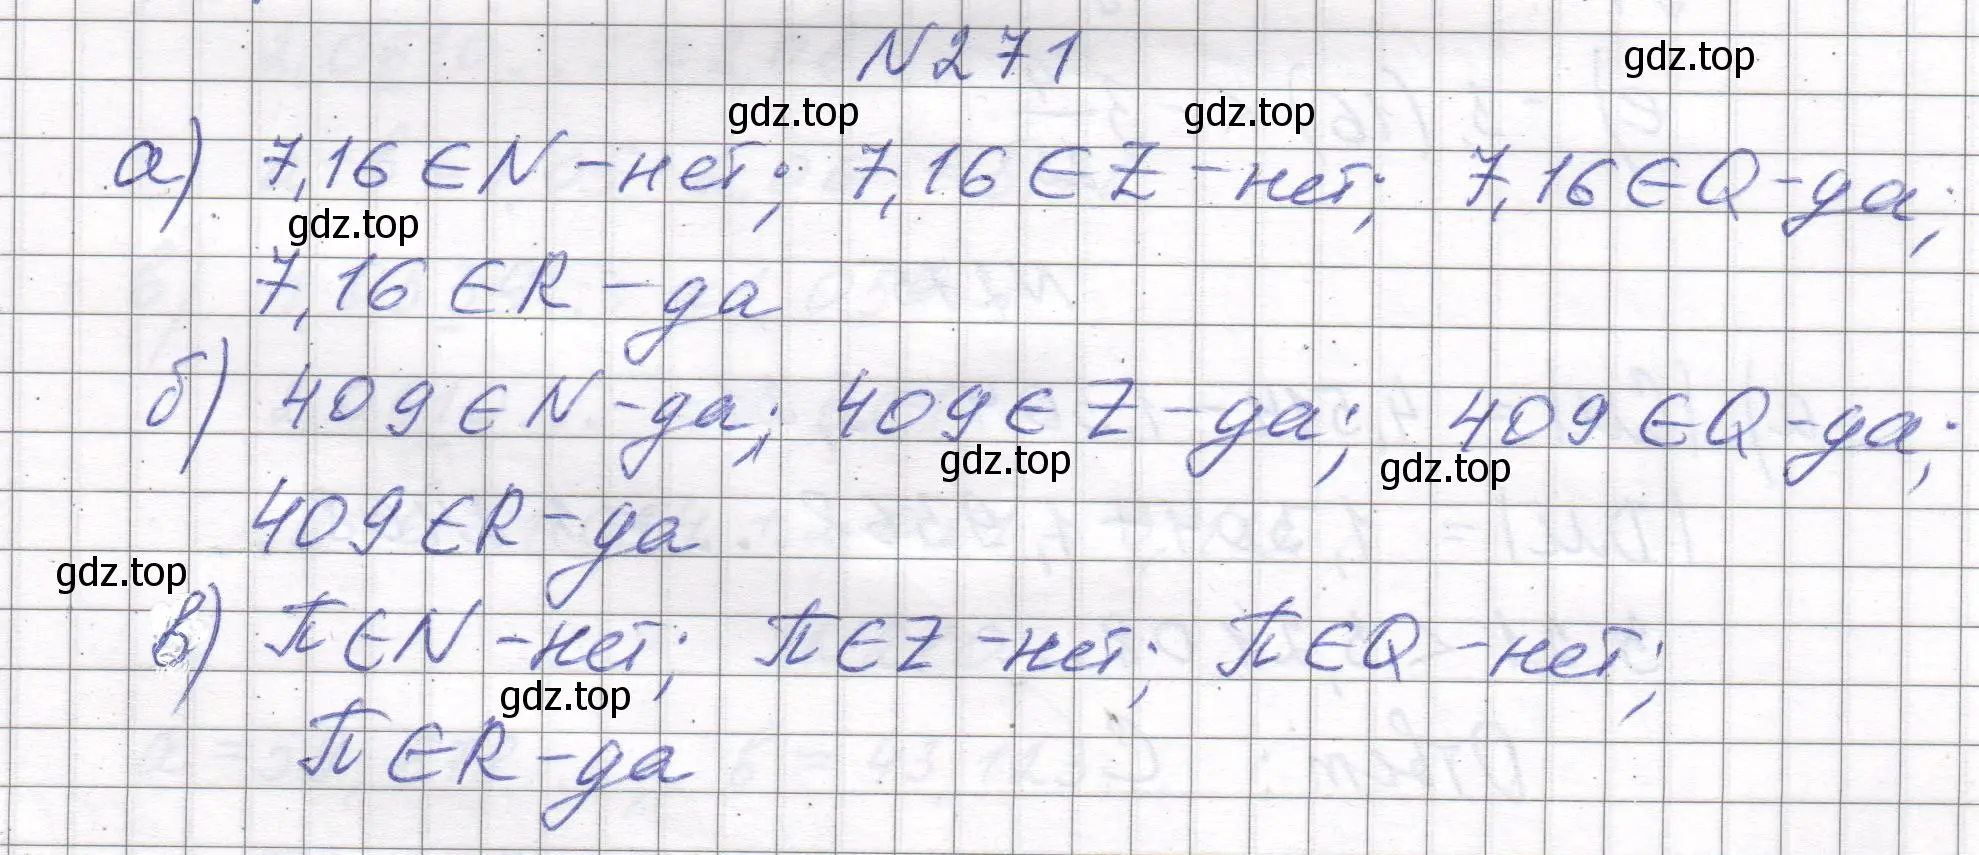 N271
gdz.top
gdz.top gdz.top
а) 7,16 ∈ N – нет; 7,16 ∈ Z – нет; 7,16 ∈ Q – да;
gdz.top
7,16 ∈ R – да
б) 409 ∈ N – да; 409 ∈ Z – да; 409 ∈ Q – да;
gdz.top gdz.top
409 ∈ R – да
gdz.top
в) π ∈ N – нет; π ∈ Z – нет; π ∈ Q – нет;
gdz.top
π ∈ R – да